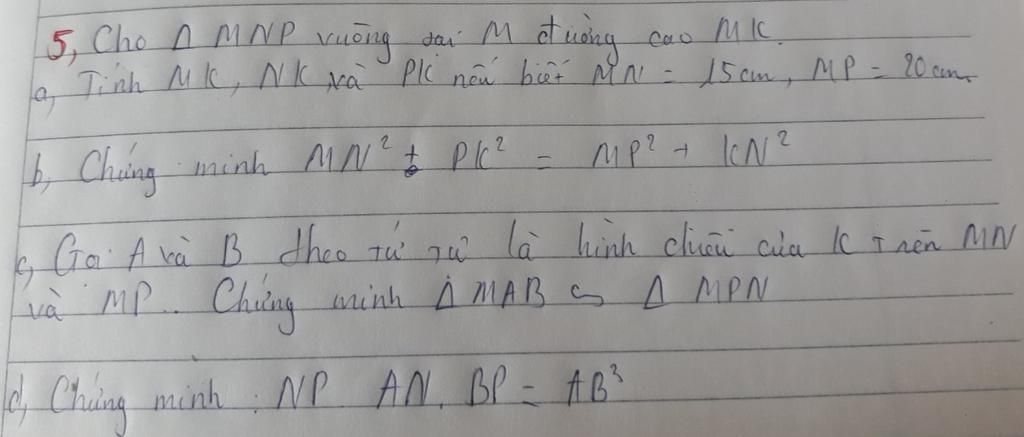 5, Cho Δ MNP vuông tại M đường cao MK.
a, Tính MK, NK và PK nếu biết MN = 15cm, MP = 20cm.
b, Chứng minh MN² + PK² = MP² + KN²
c, Gọi A và B theo tứ tự là hình chiếu của K trên MN
và MP.. Chứng minh Δ MAB ∽ Δ MPN
d, Chứng minh : NP AN. BP = AB³